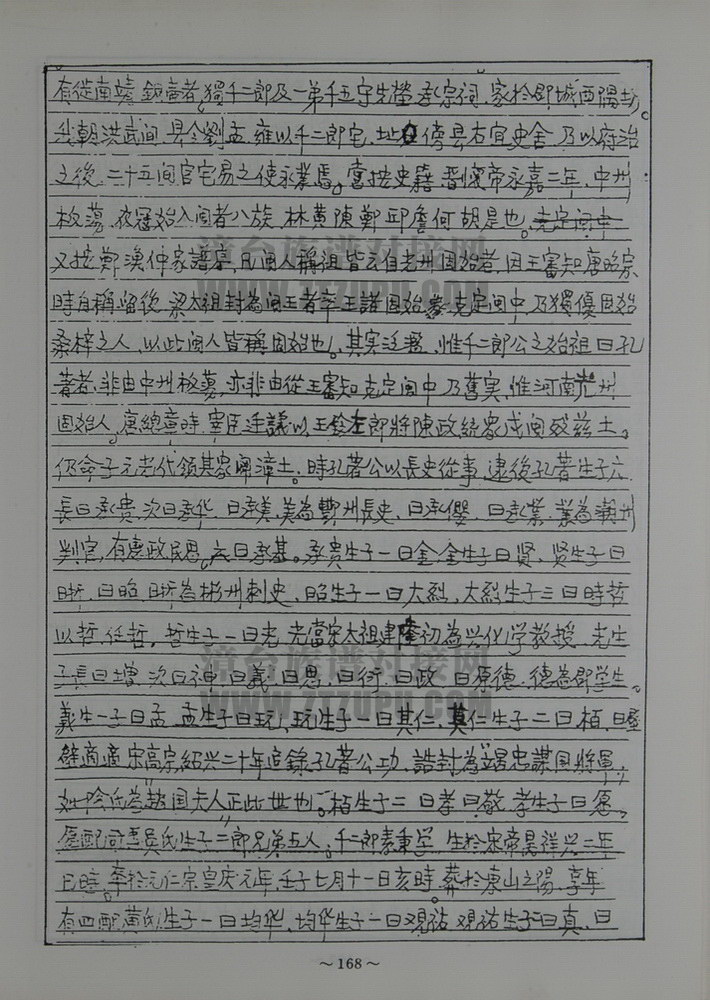 有從南靖 鎮者,獨千二郎及一弟千五守先塋 承宗祠、家於郡城西隅、
我朝洪武间、县令劉孟 雍以千二郎宅、址 傍县右宜史舍、乃以府治
之後、二十五间官宅易之使永業焉。嘗按史籍 晋懷帝永嘉二年、中州
板蕩、衣冠始入闽者八族、林黄陳鄭 邱詹何 胡是也。
又按鄭漁仲家譜、凡闽人稱祖 皆云自光州固始者、因王審知唐昭宗
時自稱留後、梁太祖封為闽王者率王諸固始 克定闽中、乃獨優固始
桑梓之人、以此闽人皆稱固始也。其实、惟千二郎公之始祖曰孔
著者、非由中州板蕩、亦非由從王審知克定闽中、乃舊实、惟河南光州
固始人。唐總章時、宰臣 議以玉鈐左郎將陳政統家戍闽 兹土。
仍命子元光代領其家 漳土。時孔著公以長史從事、逮後孔著生子六
長曰承贵、次曰承华、曰承美、美為 州長史、曰承 、曰承業、業為潮州
判官、有惠政民思、六曰承基。承贵生子一曰金、金生子曰贤、贤生子曰
昕、曰昭、昕為郴州刺史、昭生子一曰大烈、大烈生子三曰時哲
以哲、任哲、哲生子一曰光、光當宋太祖建隆初為兴化学教授、光生
子長曰增、次曰神、曰義、曰思、曰衍、曰政、曰原德、德為郡学生。
義生一子曰孟、孟生子曰玩、玩生子一曰其仁、其仁生子二曰栢、曰
適 宋高宗紹兴二十年追錄孔著公功、誥封為 忠謀国將軍
妣 氏為趙国夫人正此世也。栢生子二、曰孝曰敬、孝生子曰愿。
愿配 吴氏生子二郎兄弟五人。千二郎素秉学、生於宋帝昺祥兴二年
巳時、卒於元仁宗皇庆元年、壬子七月十一日亥時、葬於東山之陽、享年
有四配黄氏生子一曰均华、均华生子一曰观祐、观祐生子 曰真、曰
～168～
漳台族谱对接网
WWW.ZTZUPU.COM
漳台族谱对接网
WWW.ZTZUPU.COM